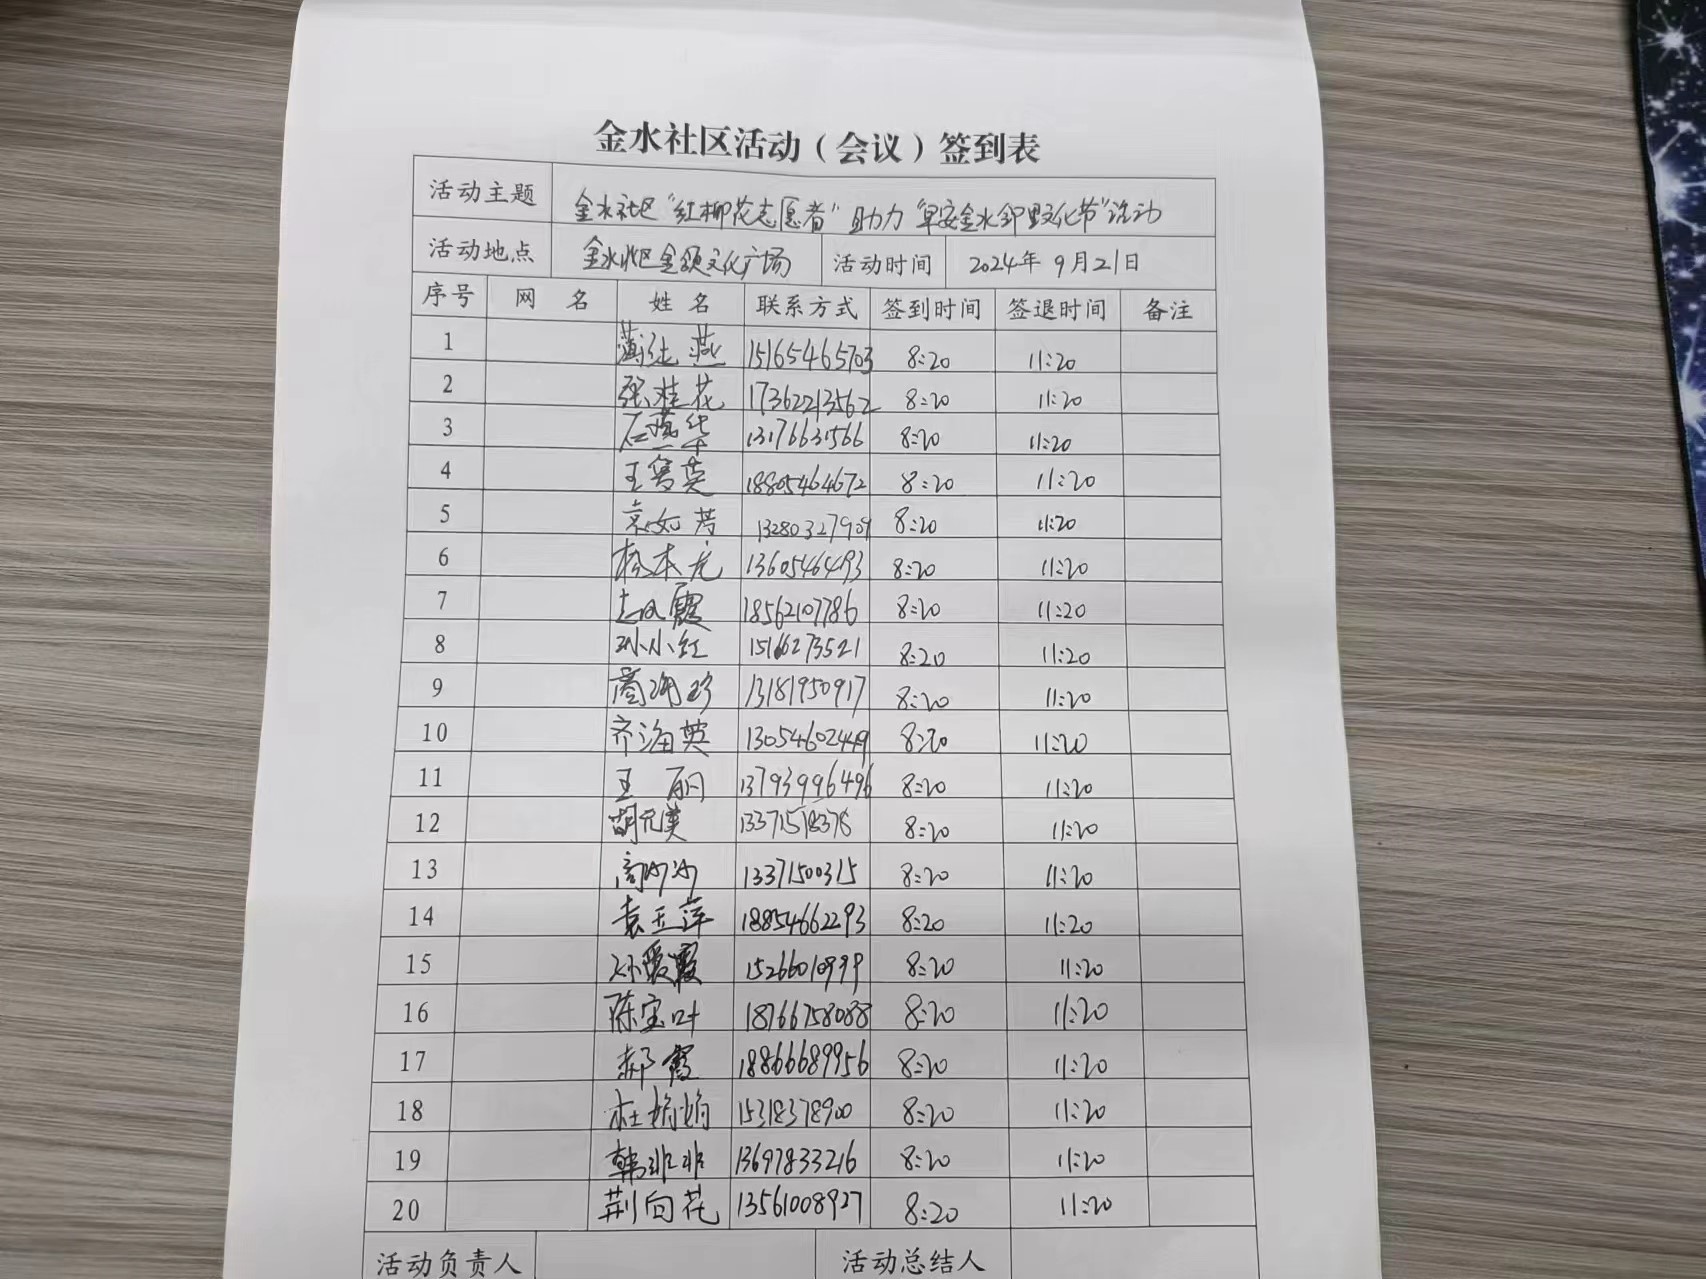 金水社区活动（会议）签到表
活动主题 金水社区“红柳花志愿者”助力“早安金水邻里文化节”活动
活动地点 金水社区金领文化广场 活动时间 2024年9月21日
序号 网名 姓名 联系方式 签到时间 签退时间 备注
1 燕 15165465703 8:20 11:20
2 张桂花 17362213562 8:20 11:20
3 石燕华 13176631566 8:20 11:20
4 王英 18805464672 8:20 11:20
5 袁如芳 13280327909 8:20 11:20
6 杨本龙 13605464493 8:20 11:20
7 赵凤霞 18562107786 8:20 11:20
8 孙小红 15166273521 8:20 11:20
9 珍 13181950917 8:20 11:20
10 齐海英 13054602449 8:20 11:20
11 王丽 13793996496 8:20 11:20
12 胡元美 13371518378 8:20 11:20
13 高 13371500315 8:20 11:20
14 袁玉萍 18854662293 8:20 11:20
15 孙爱霞 15266010999 8:20 11:20
16 陈宝叶 18766758088 8:20 11:20
17 郝霞 18866689956 8:20 11:20
18 杜娟娟 15318378900 8:20 11:20
19 韩非非 13697833216 8:20 11:20
20 荆向花 13561008927 8:20 11:20
活动负责人 活动总结人